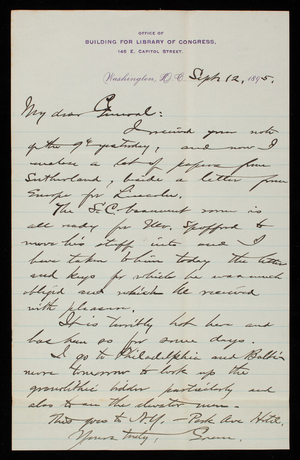 OFFICE OF
BUILDING FOR LIBRARY OF CONGRESS,
145 E. CAPITOL STREET.
Washington, D. C. Sept. 12, 1895.
My dear General:
I received your note
of the 9th yesterday, and now I
enclose a lot of papers from
Sutherland, beside a letter from
Europe for Lincoln.
The S.E. basement room is
all ready for Mr. Spofford to
move his stuff into and I
have taken to him today the letter
and keys for which he was much
obliged and which he received
with pleasure.
It is terribly hot here and
has been so for some days.
I go to Philadelphia and Balti-
more tomorrow to look up the
granolithic bidder particularly and
also to see the elevator men.
This goes to N.Y. – Park Ave Hotel.
Yours truly, Green.